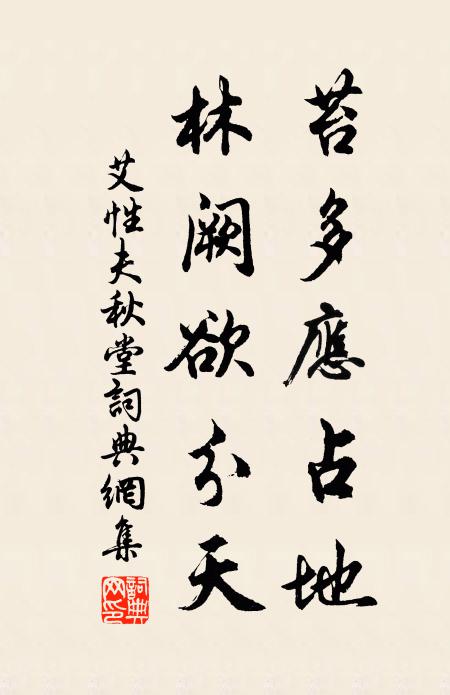 苔多應占地
林闕欲分天
艾性夫秋堂詞典網集
詞典網印